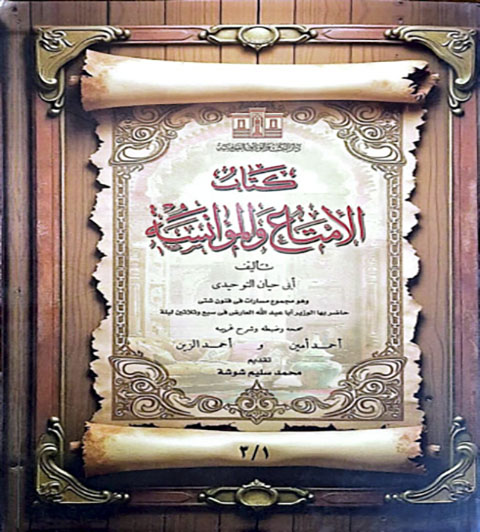 كتاب
الإمتاع والمؤانسة
تأليف
أبى حيان التوحيدى
وهو مجموع مسامرات فى فنون شتى
حاضر بها الوزير أبا عبد الله العارض فى سبع وثلاثين ليلة
صححه وضبطه وشرح غريبه
أحمد أمين و أحمد الزين
تقديم
محمد سليم شوشة
٣/١